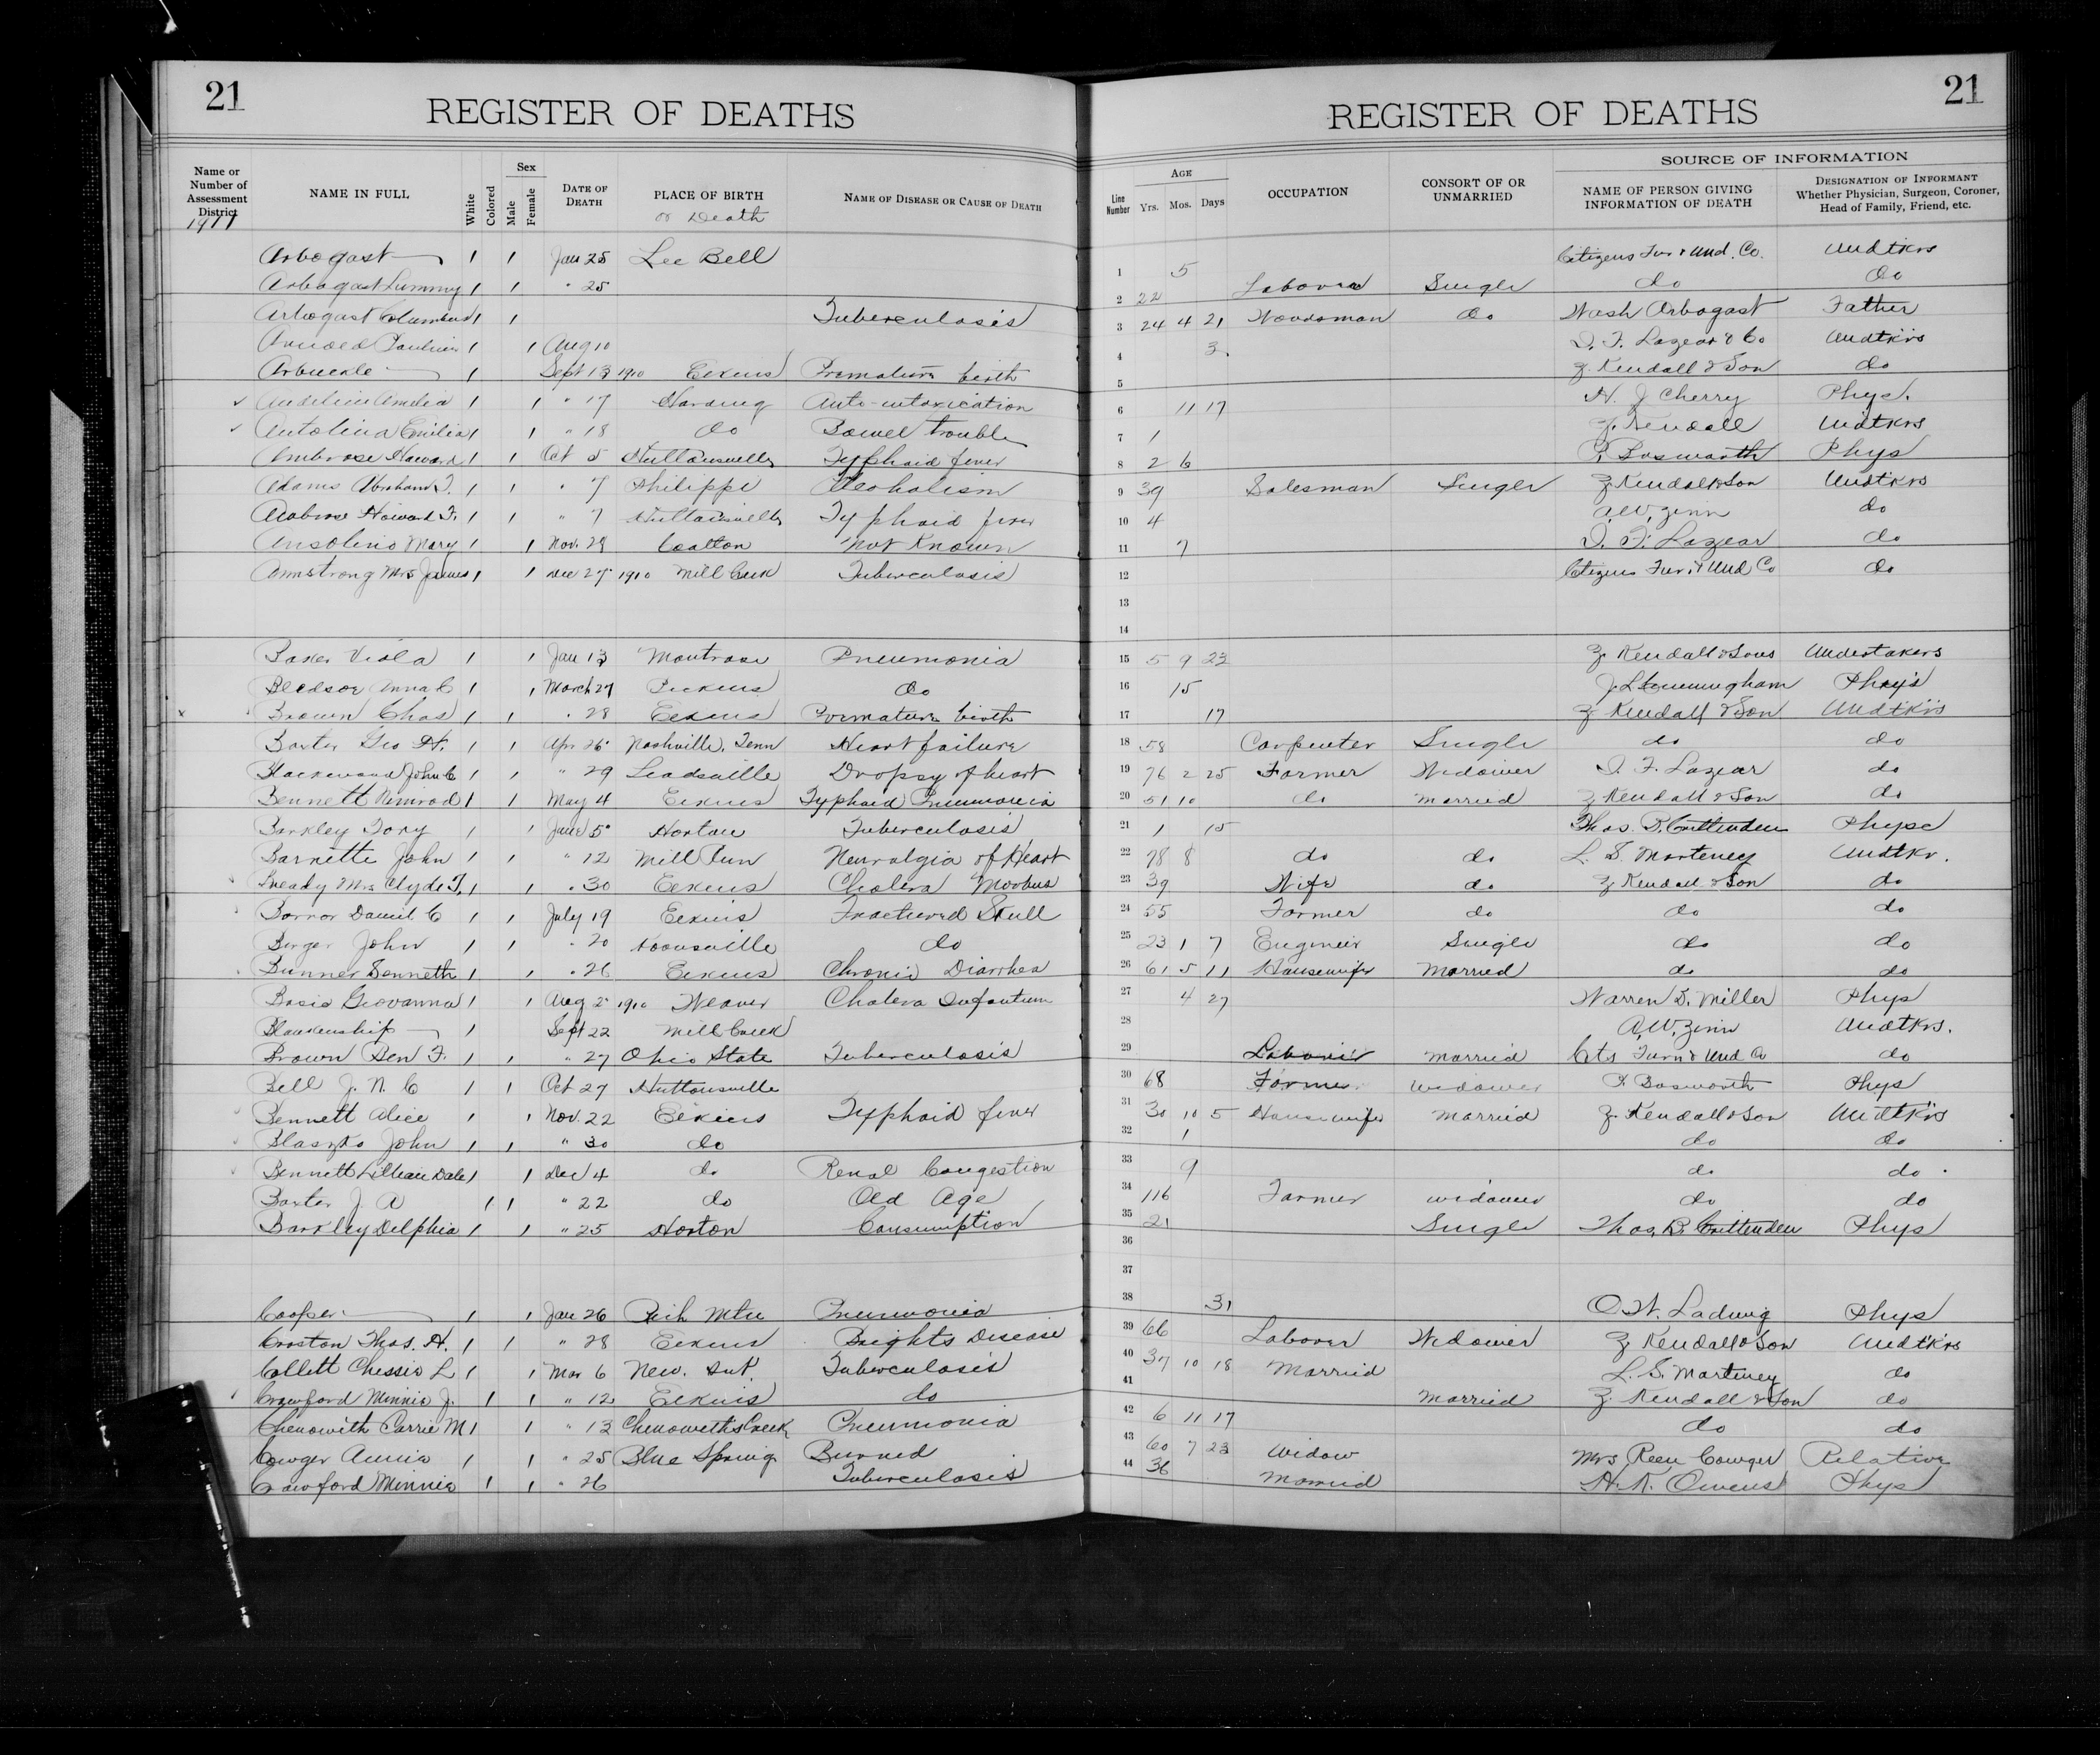 21
REGISTER OF DEATHS
Name or Number of Assessment District
NAME IN FULL
White
Colored
Sex
Male
Female
DATE OF DEATH
PLACE OF BIRTH
or Death
NAME OF DISEASE OR CAUSE OF DEATH
1911
Arbogast 1 1 Jan 25 Lee Bell
Arbogast Lummy 1 1 " 25
Arbogast Columbus 1 1 Tuberculosis
Arnold Pauline 1 1 Aug 10
Arbucale 1 Sept 13 1910 Elkins Premature birth
Amelia 1 1 " 17 Harding Auto-intoxication
Antolina Emilia 1 1 " 18 do Bowel trouble
Ambrose Howard 1 1 Oct 5 Huttonsville Typhoid fever
Adams Abraham T. 1 1 " 7 Philippi Alcoholism
Ambrose Howard F. 1 1 " 7 Huttonsville Typhoid fever
Ansolino Mary 1 1 Nov. 29 Coalton Not Known
Armstrong Mrs James 1 1 Dec 27 1910 Mill Creek Tuberculosis
Baker Viola 1 1 Jan 13 Montrose Pneumonia
Bledsoe Anna C 1 1 March 27 Pickens do
Brown Chas 1 1 " 28 Elkins Premature birth
Baxter Geo H. 1 1 Apr 26 Nashville, Tenn Heart failure
Blackwood John C 1 1 " 29 Leadsville Dropsy of heart
Bennett Nimrod 1 1 May 4 Elkins Typhoid Pneumonia
Barkley Tony 1 1 June 5 Horton Tuberculosis
Barnette John 1 1 " 12 Mill Run Neuralgia of Heart
Mrs Clyde T. 1 1 " 30 Elkins Cholera Morbus
Borror Daniel C 1 1 July 19 Elkins Fractured Skull
Berger John 1 1 " 20 do
Bunner Senneth 1 1 " 26 Elkins Chronic Diarrhea
Basia Geovanna 1 1 Aug 2 1910 Weaver Cholera Infantum
Blankenship 1 Sept 22 Mill Creek
Brown Ben F. 1 1 " 27 Ohio State Tuberculosis
Bell J. N. C 1 1 Oct 27 Huttonsville
Bennett Alice 1 1 Nov. 22 Elkins Typhoid fever
Blaszko John 1 1 " 30 do
Bennett Lillian Dale 1 1 Dec 4 do Renal Congestion
Baxter J. A 1 1 " 22 do Old Age
Barkley Delphia 1 1 " 25 Horton Consumption
Cooper 1 1 Jan 26 Rich Mtn Pneumonia
Croston Thos. H. 1 1 " 28 Elkins Brights Disease
Collett Chessie L 1 1 Mar 6 New. Int. Tuberculosis
Crawford Minnie J. 1 1 " 12 Elkins do
Chenowith Carrie M 1 1 " 13 Chenoweths Creek Pneumonia
Cowger Annie 1 1 " 25 Blue Spring Burned
Crawford Minnie 1 1 " 26 Tuberculosis
21
REGISTER OF DEATHS
Line Number
AGE
Yrs. Mos. Days
OCCUPATION
CONSORT OF OR UNMARRIED
SOURCE OF INFORMATION
NAME OF PERSON GIVING INFORMATION OF DEATH
DESIGNATION OF INFORMANT
Whether Physician, Surgeon, Coroner, Head of Family, Friend, etc.
1 5 Citizens Fur & Und. Co. Undtkrs
2 22 Laborer Single do do
3 24 4 21 Woodsman do Wash Arbogast Father
4 3 I. F. Lazear & Co Undtkrs
5 Z. Kendall & Son do
6 11 17 H. J Cherry Phys.
7 1 Z. Kendall Undtkrs
8 2 6 P. Bosworth Phys
9 39 Salesman Single Z Kendall & Son Undtkrs
10 4 A.W. Zinn do
11 7 I. F. Lazear do
12 Citizens Fur. & Und Co do
13
14
15 5 9 23 Z. Kendall & Sons Undertakers
16 15 J. L Cunningham Phys
17 17 Z Kendall & Son Undtkrs
18 58 Carpenter Single do do
19 76 2 25 Farmer Widower I. F. Lazear do
20 51 10 do Married Z Kendall & Son do
21 1 15 Thos. B. Crittenden Phys
22 78 8 do do L. S. Marteney Undtkr.
23 39 Wife do Z Kendall & Son do
24 55 Farmer do do do
25 23 1 7 Engineer Single do do
26 61 5 11 Housewife Married do do
27 4 27 Warren D. Miller Phys
28 A.W. Zinn Undtkrs.
29 Laborer Married Cits Furn & Und Co do
30 68 Farmer Widower P. Bosworth Phys
31 30 10 5 Housewife Married Z. Kendall & Son Undtkrs
32 1 do do
33 9 do do
34 116 Farmer widower do do
35 21 Single Thos. B. Crittenden Phys
36
37
38 31 O. W. Ladwig Phys
39 66 Laborer Widower Z Kendall & Son Undtkrs
40 37 10 18 Married L. S. Marteney do
41 Married Z. Kendall & Son do
42 6 11 17 do do
43 60 7 23 Widow Mrs Reen Cowger Relative
44 36 Married H. K. Owens Phys